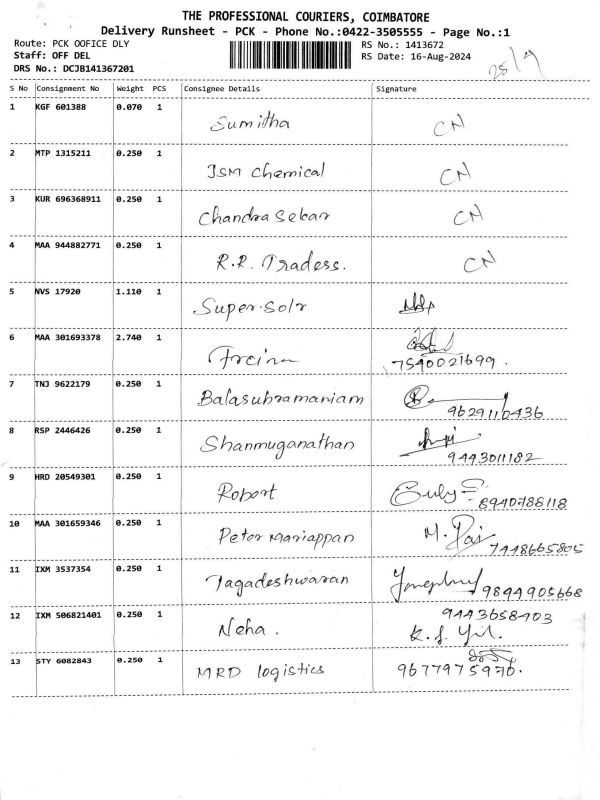 THE PROFESSIONAL COURIERS, COIMBATORE
Delivery Runsheet - PCK - Phone No.:0422-3505555 - Page No.:1
Route: PCK OOFICE DLY RS No.: 1413672
Staff: OFF DEL RS Date: 16-Aug-2024
DRS No.: DCJB141367201
S No Consignment No Weight PCS Consignee Details Signature
1 KGF 601388 0.070 1 Sumitha CN
2 MTP 1315211 0.250 1 JSM Chemical CN
3 KUR 696368911 0.250 1 Chandra Sekar CN
4 MAA 944882771 0.250 1 R.R. Tradess. CN
5 NVS 17920 1.110 1 Super.Solr
6 MAA 301693378 2.740 1
7540021699.
7 TNJ 9622179 0.250 1 Balasubramaniam
9629110436
8 RSP 2446426 0.250 1 Shanmuganathan
9443011182
9 HRD 20549301 0.250 1 Robert
8940788118
10 MAA 301659346 0.250 1 Peter Mariappan
7448665805
11 IXM 3537354 0.250 1 Jagadeshwaran 9844905668
12 IXM 506821401 0.250 1 Neha. 9443658403
13 STY 6082843 0.250 1 MRD logistics 9677975970.